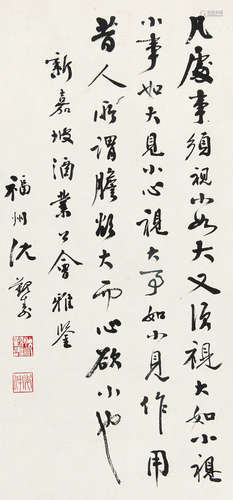 凡處事須視小如大又須視大如小視
小事如大見小心視大事如小見作用
昔人所謂膽欲大而心欲小也
新嘉坡酒業公會雅鑒
福州沈覲壽